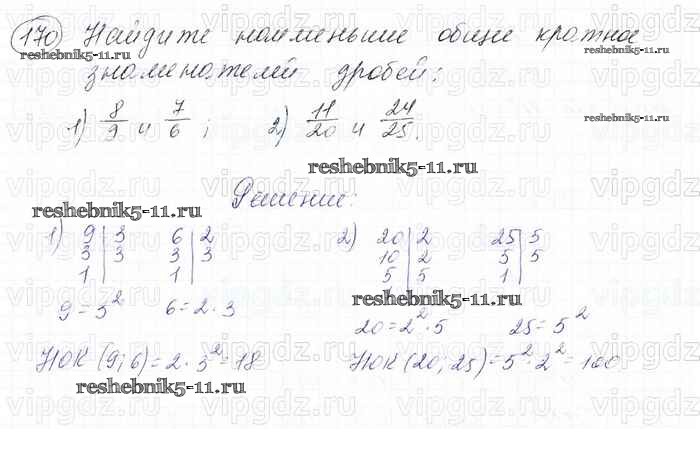 170 Найдите наименьшие общие кратное
знаменателей дробей:
1) 8/9 и 7/6; 2) 11/20 и 24/25.
Решение:
1) 9|3 6|2 2) 20|2 25|5
3|3 3|3 10|2 5|5
1| 1| 5|5 1|
9=3² 6=2·3
20=2²·5 25=5²
НОК (9; 6)=2·3²=18 НОК (20; 25)=5²·2²=100
reshebnik5-11.ru
reshebnik5-11.ru
reshebnik5-11.ru
reshebnik5-11.ru
reshebnik5-11.ru
reshebnik5-11.ru
reshebnik5-11.ru
vipgdz.ru